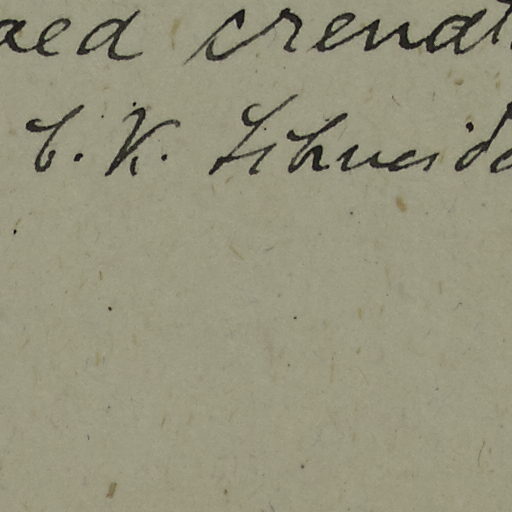 aed crenat
C. K. Schneide